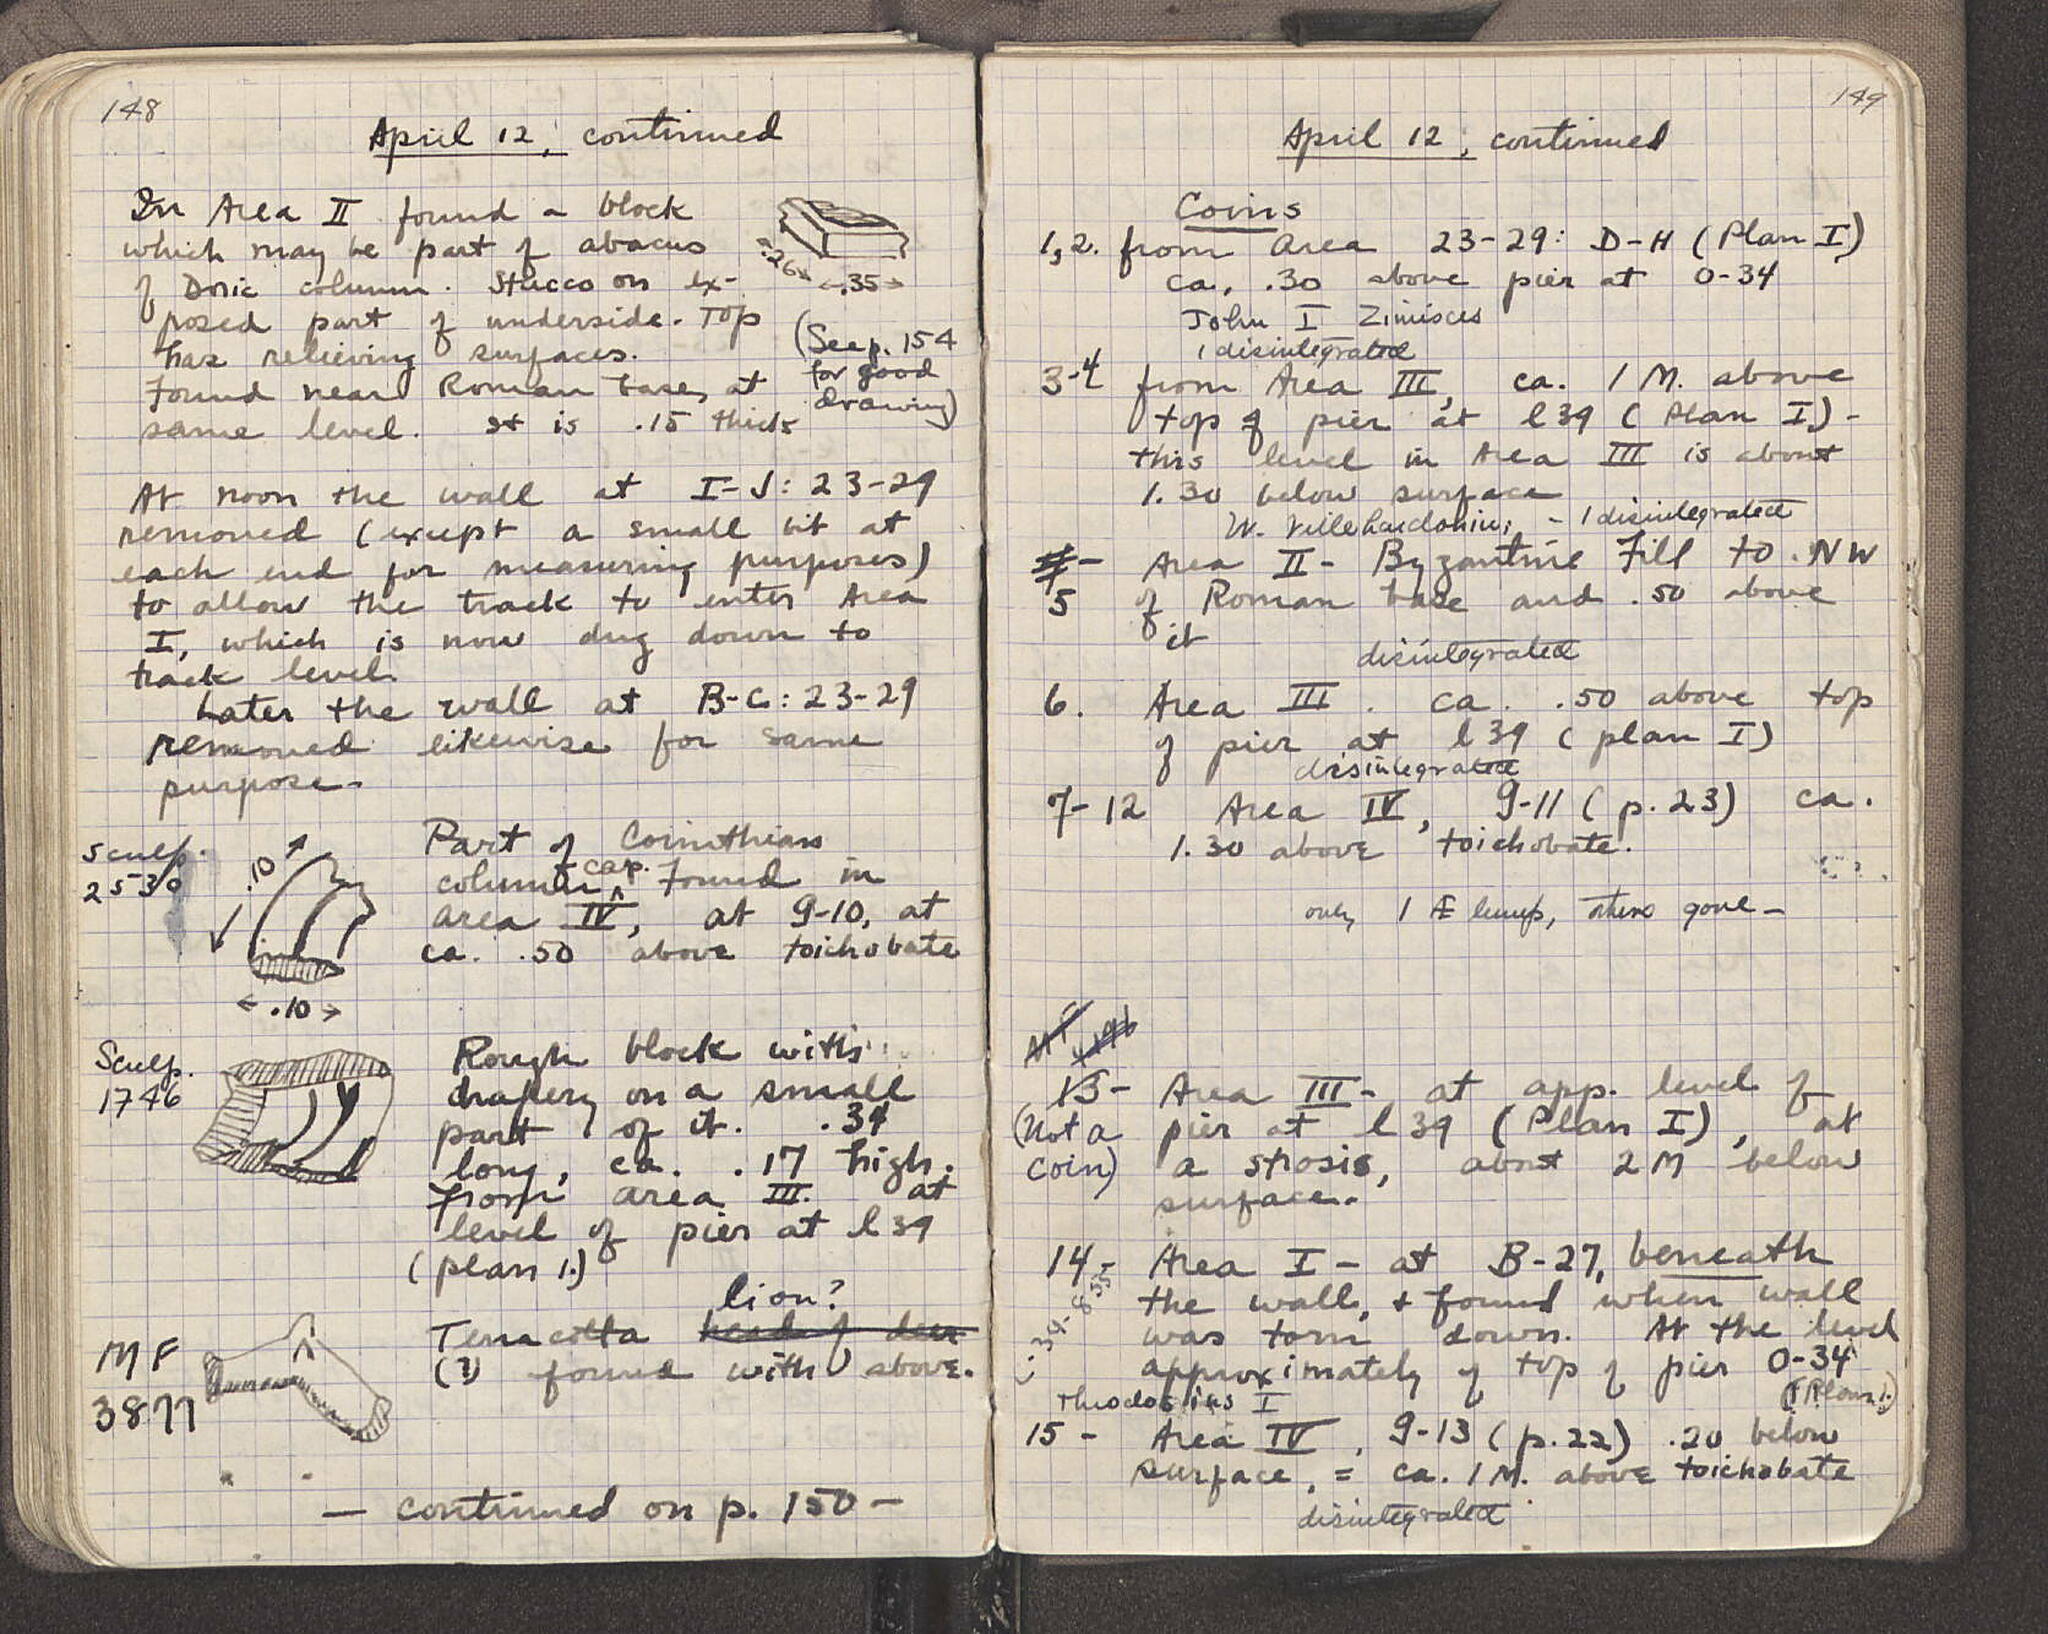 148
April 12, continued
In Area II found a block
which may be part of abacus
of Doric column. Stucco on ex-
posed part of underside. Top
has relieving surfaces.
Found near Roman base, at
same level. It is .15 thick
.26
.35
(See p. 154
for good
drawing)
At noon the wall at I-J: 23-29
removed (except a small bit at
each end for measuring purposes)
to allow the track to enter Area
I, which is now dug down to
track level.
Later the wall at B-C: 23-29
removed likewise for same
purpose.
Sculp.
2530
.10
.10
Part of Corinthian
column cap. Found in
area IV, at 9-10, at
ca. .50 above toichobate
Sculp.
1746
Rough block with
drapery on a small
part of it. .34
long, ca. .17 high.
From area III. at
level of pier at l 39
(plan 1.)
MF
3877
lion?
Terracotta head of deer
(?) found with above.
— continued on p. 150 —
149
April 12, continued
Coins
1,2. from Area 23-29: D-H (Plan I)
ca. .30 above pier at O-34
John I Zimisces
1 disintegrated
3-4 from Area III, ca. 1 M. above
top of pier at l 39 (Plan I) -
this level in Area III is about
1.30 below surface
W. Villehardouin; - 1 disintegrated
Area II - Byzantine Fill to NW
5 of Roman base and .50 above
it
disintegrated
6. Area III. ca. .50 above top
of pier at l 39 (plan I)
disintegrated
7-12 Area IV, 9-11 (p. 23) ca.
1.30 above toichobate.
only 1 Æ lump, others gone -
13- Area III - at app. level of
(Not a pier at l 39 (Plan I), at
coin) a strosis, about 2 M below
surface.
14- Area I - at B-27, beneath
the wall, + found when wall
was torn down. At the level
approximately of top of pier O-34
(Plan 1.)
Theodosius I
15 - Area IV, 9-13 (p. 22) .20 below
surface, = ca. 1 M. above toichobate
disintegrated